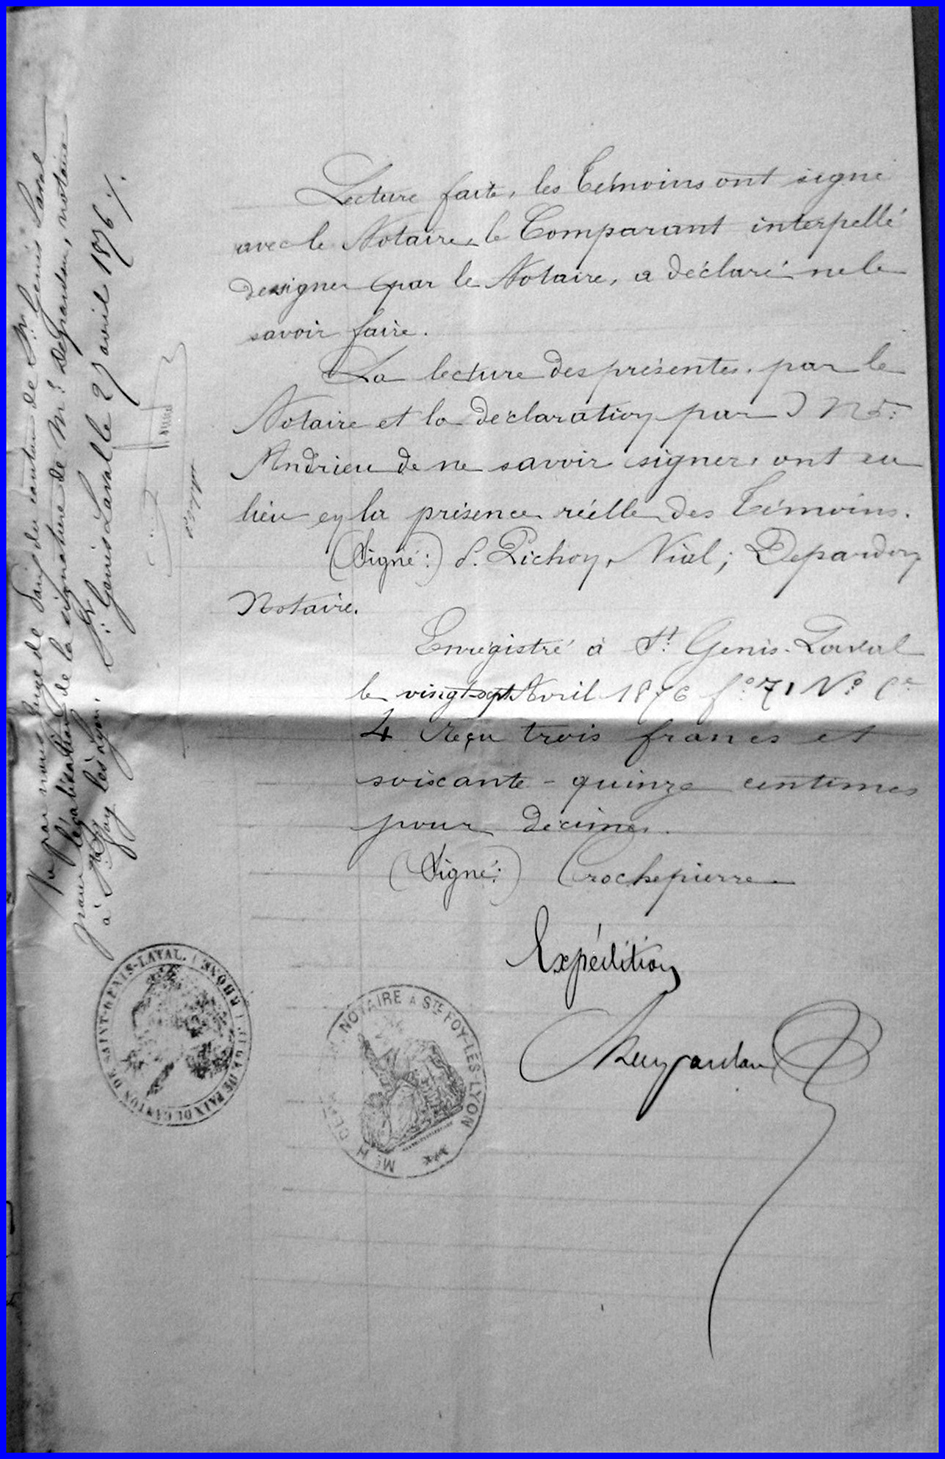 Lecture faite, les Témoins ont signé
avec le Notaire, le Comparant interpellé
de signer par le Notaire, a déclaré ne le
savoir faire.
La lecture des présentes par le
Notaire et la déclaration par
Andrieu de ne savoir signer, ont eu
lieu en la présence réelle des Témoins.
(Signé:) Pichon, Vial; Depardon,
Notaire.
Enregistré à St. Genis-Laval
le vingt-sept Avril 1876 fo. 71 No. Ce
4 Reçu trois francs et
soixante-quinze centimes
pour décimes.
(Signé:) Crochepierre
Expédition
Vu par nous Juge de Paix du canton de St. Genis Laval
pour légalisation de la signature de Me. Depardon, notaire
à Ste Foy lès Lyon. St. Genis Laval le 29 avril 1876
JUGE DE PAIX DU CANTON DE SAINT-GENIS-LAVAL (RHONE)
NOTAIRE A STE FOY-LES-LYON